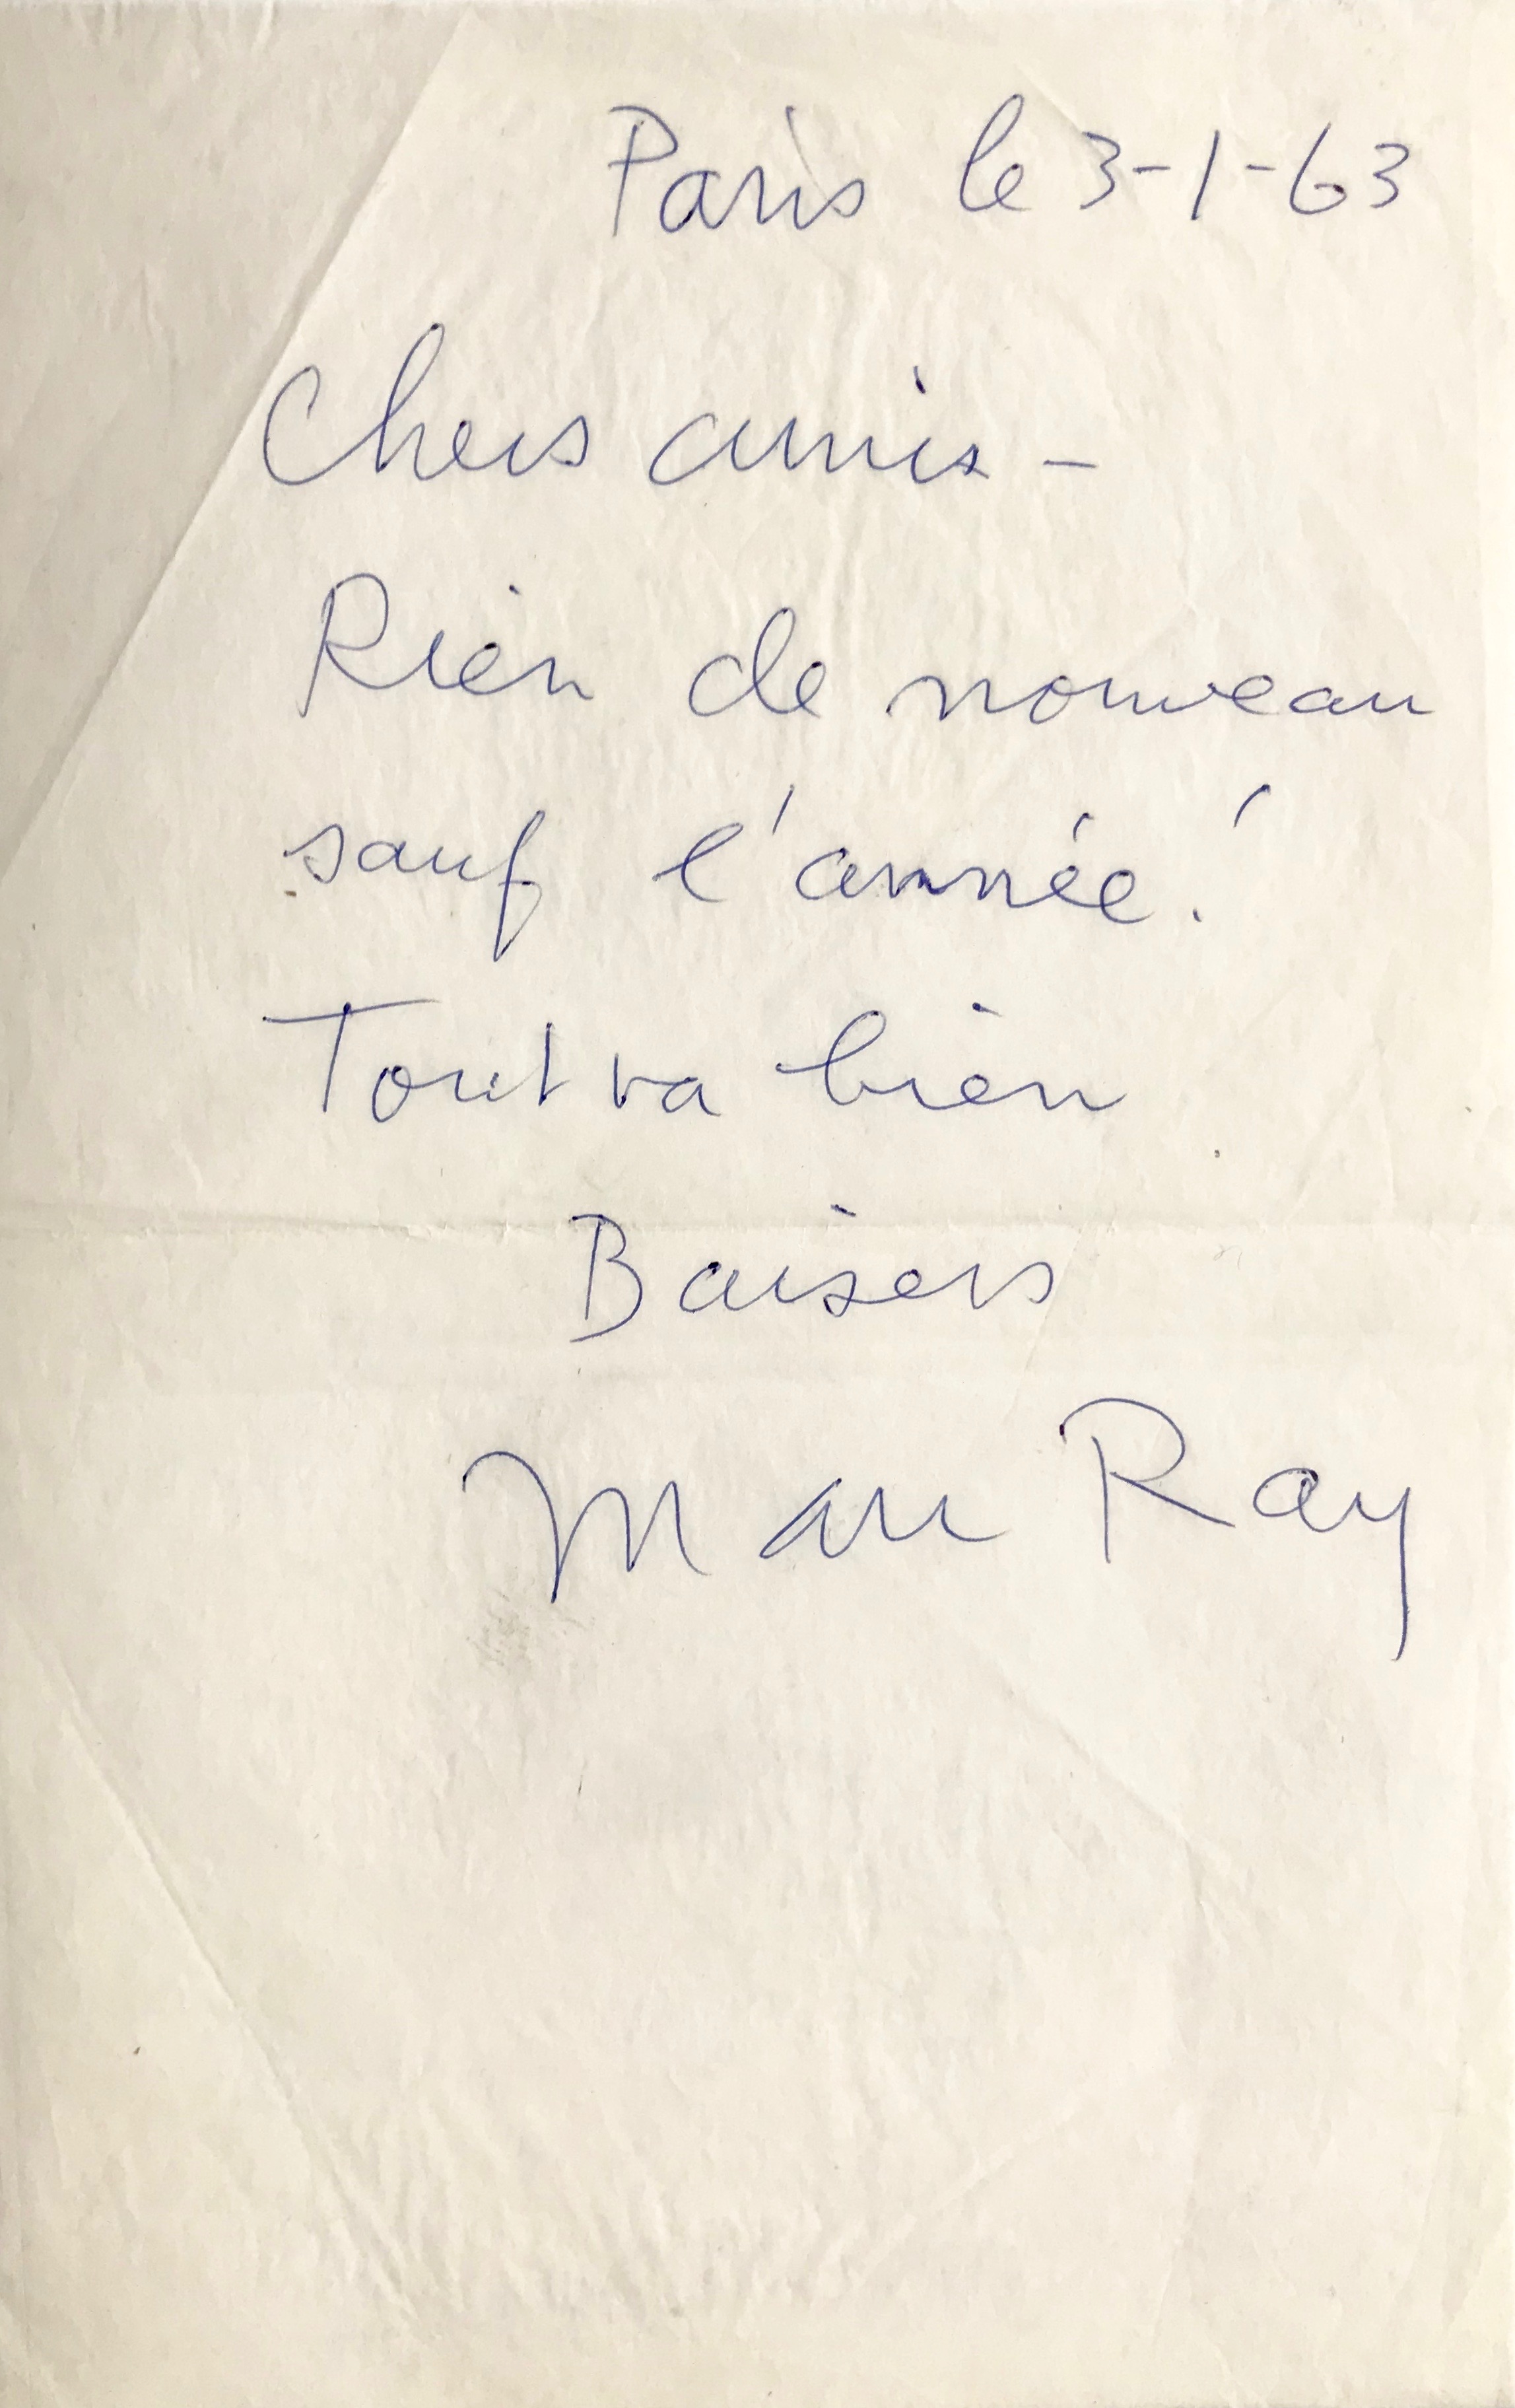 Paris le 3-1-63
Chers amis -
Rien de nouveau
sauf l'année!
Tout va bien
Baisers
Man Ray